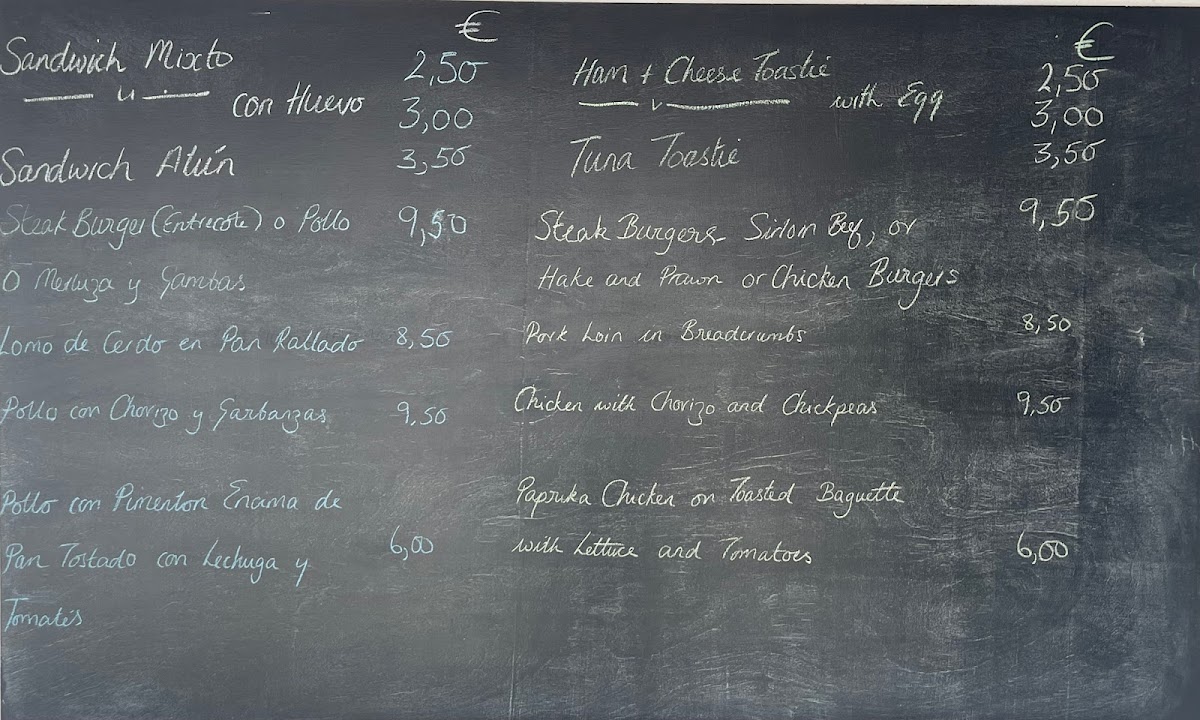 €
Sandwich Mixto 2,50
" con Huevo 3,00
Sandwich Atún 3,50
Steak Burger (Entrecote) o Pollo 9,50
O Merluza y Gambas
Lomo de Cerdo en Pan Rallado 8,50
Pollo con Chorizo y Garbanzas 9,50
Pollo con Pimenton Enama de
Pan Tostado con Lechuga y 6,00
Tomatés
€
Ham + Cheese Toastie 2,50
" with Egg 3,00
Tuna Toastie 3,50
Steak Burgers Sirloin Beef, or 9,50
Hake and Prawn or Chicken Burgers
Pork Loin in Breadcrumbs 8,50
Chicken with Chorizo and Chickpeas 9,50
Paprika Chicken on Toasted Baguette
with Lettuce and Tomatoes 6,00